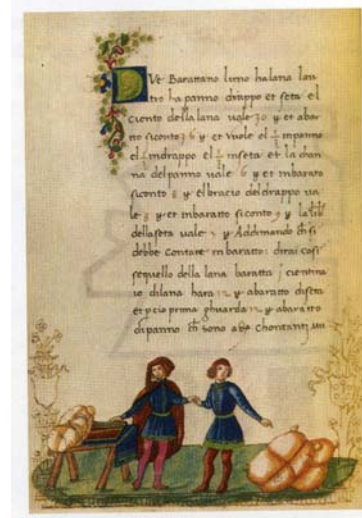 Due Barattano luno ha lana lau
tro ha panno drappo et seta el
ciento della lana uale 30 y et abar
siconto 36 y et vuole el ⅓ inpanno
el ⅓ indrappo el ⅓ inseta et la chan
na del panno uale 6 y et inbarato
siconto 8 y el bracio del drappo ua
le 8 y et inbaratto siconto 9 y la
della seta uale y Addimando
debbe Contare inbaratto: dirai cosi
se quello della lana baratta 1 centina
io dilana hara 12 y abaratto diseta
et pcio prima ghuarda 12 y abaratto
dipanno sono Chontanti un